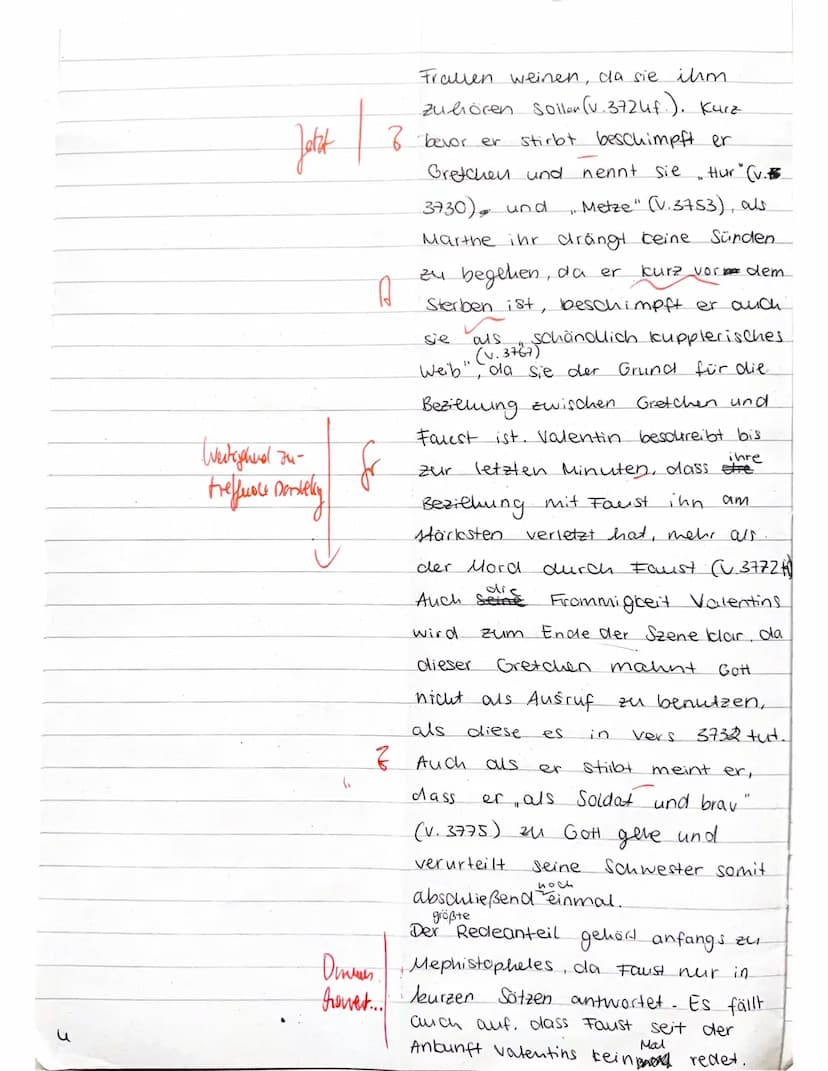 Frauen weinen, da sie ihm
zuhören sollen (V. 3724f.). Kurz
Jetzt
bevor er stirbt beschimpft er
Gretchen und nennt sie „Hur" (V.
3730) und „Metze" (V. 3753), als
Marthe ihr drängt keine Sünden
zu begehen, da er kurz vor dem
A
Sterben ist, beschimpft er auch
sie als „schändlich kupplerisches
(V. 3767)
Weib", da sie der Grund für die
Beziehung zwischen Gretchen und
Faust ist. Valentin beschreibt bis
Weitgehend zu-
treffende
zur letzten Minuten, dass ihre
Gr
Beziehung mit Faust ihn am
stärksten verletzt hat, mehr als
der Mord durch Faust (V. 3772f)
Auch die Frommigkeit Valentins
wird zum Ende der Szene klar, da
dieser Gretchen mahnt Gott
nicht als Ausruf zu benutzen,
als diese es in Vers 3732 tut.
Auch als er stirbt meint er,
dass er „als Soldat und brav"
(V. 3775) zu Gott gehe und
verurteilt seine Schwester somit
abschließend noch einmal.
Der größte Redeanteil gehört anfangs zu
Mephistopheles, da Faust nur in
kurzen Sätzen antwortet. Es fällt
auch auf, dass Faust seit der
Ankunft Valentins kein Mal redet.
4